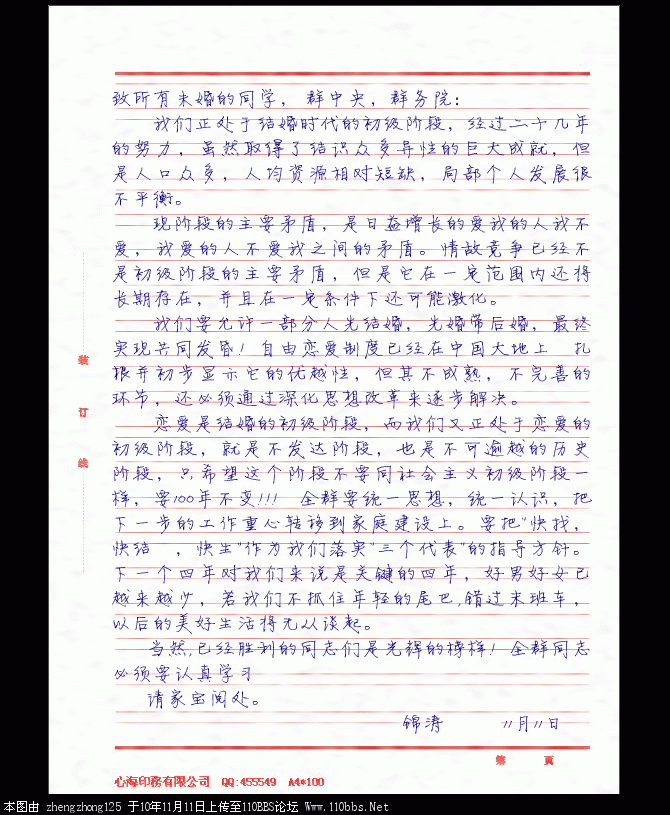 致所有未婚的同学，群中央，群务院：
我们正处于结婚时代的初级阶段，经过二十几年
的努力，虽然取得了结识众多异性的巨大成就，但
是人口众多，人均资源相对短缺，局部个人发展很
不平衡。
现阶段的主要矛盾，是日益增长的爱我的人我不
爱，我爱的人不爱我之间的矛盾。情敌竞争已经不
是初级阶段的主要矛盾，但是它在一定范围内还将
长期存在，并且在一定条件下还可能激化。
我们要允许一部分人先结婚，先婚带后婚，最终
实现共同发昏！自由恋爱制度已经在中国大地上 扎
根并初步显示它的优越性，但其不成熟，不完善的
环节，还必须通过深化思想改革来逐步解决。
恋爱是结婚的初级阶段，而我们又正处于恋爱的
初级阶段，就是不发达阶段，也是不可逾越的历史
阶段，只希望这个阶段不要同社会主义初级阶段一
样，要100年不变!!! 全群要统一思想，统一认识，把
下一步的工作重心转移到家庭建设上。要把"快找，
快结 ，快生"作为我们落实"三个代表"的指导方针。
下一个四年对我们来说是关键的四年，好男好女已
越来越少，若我们不抓住年轻的尾巴,错过末班车，
以后的美好生活将无从谈起。
当然,已经胜利的同志们是光辉的榜样！全群同志
必须要认真学习
请家宝阅处。
锦涛 11月11日
装
订
线
第 页
心海印務有限公司 QQ:455549 A4*100
本图由 zhengzhong125 于10年11月11日上传至110BBS论坛 Www.110bbs.Net